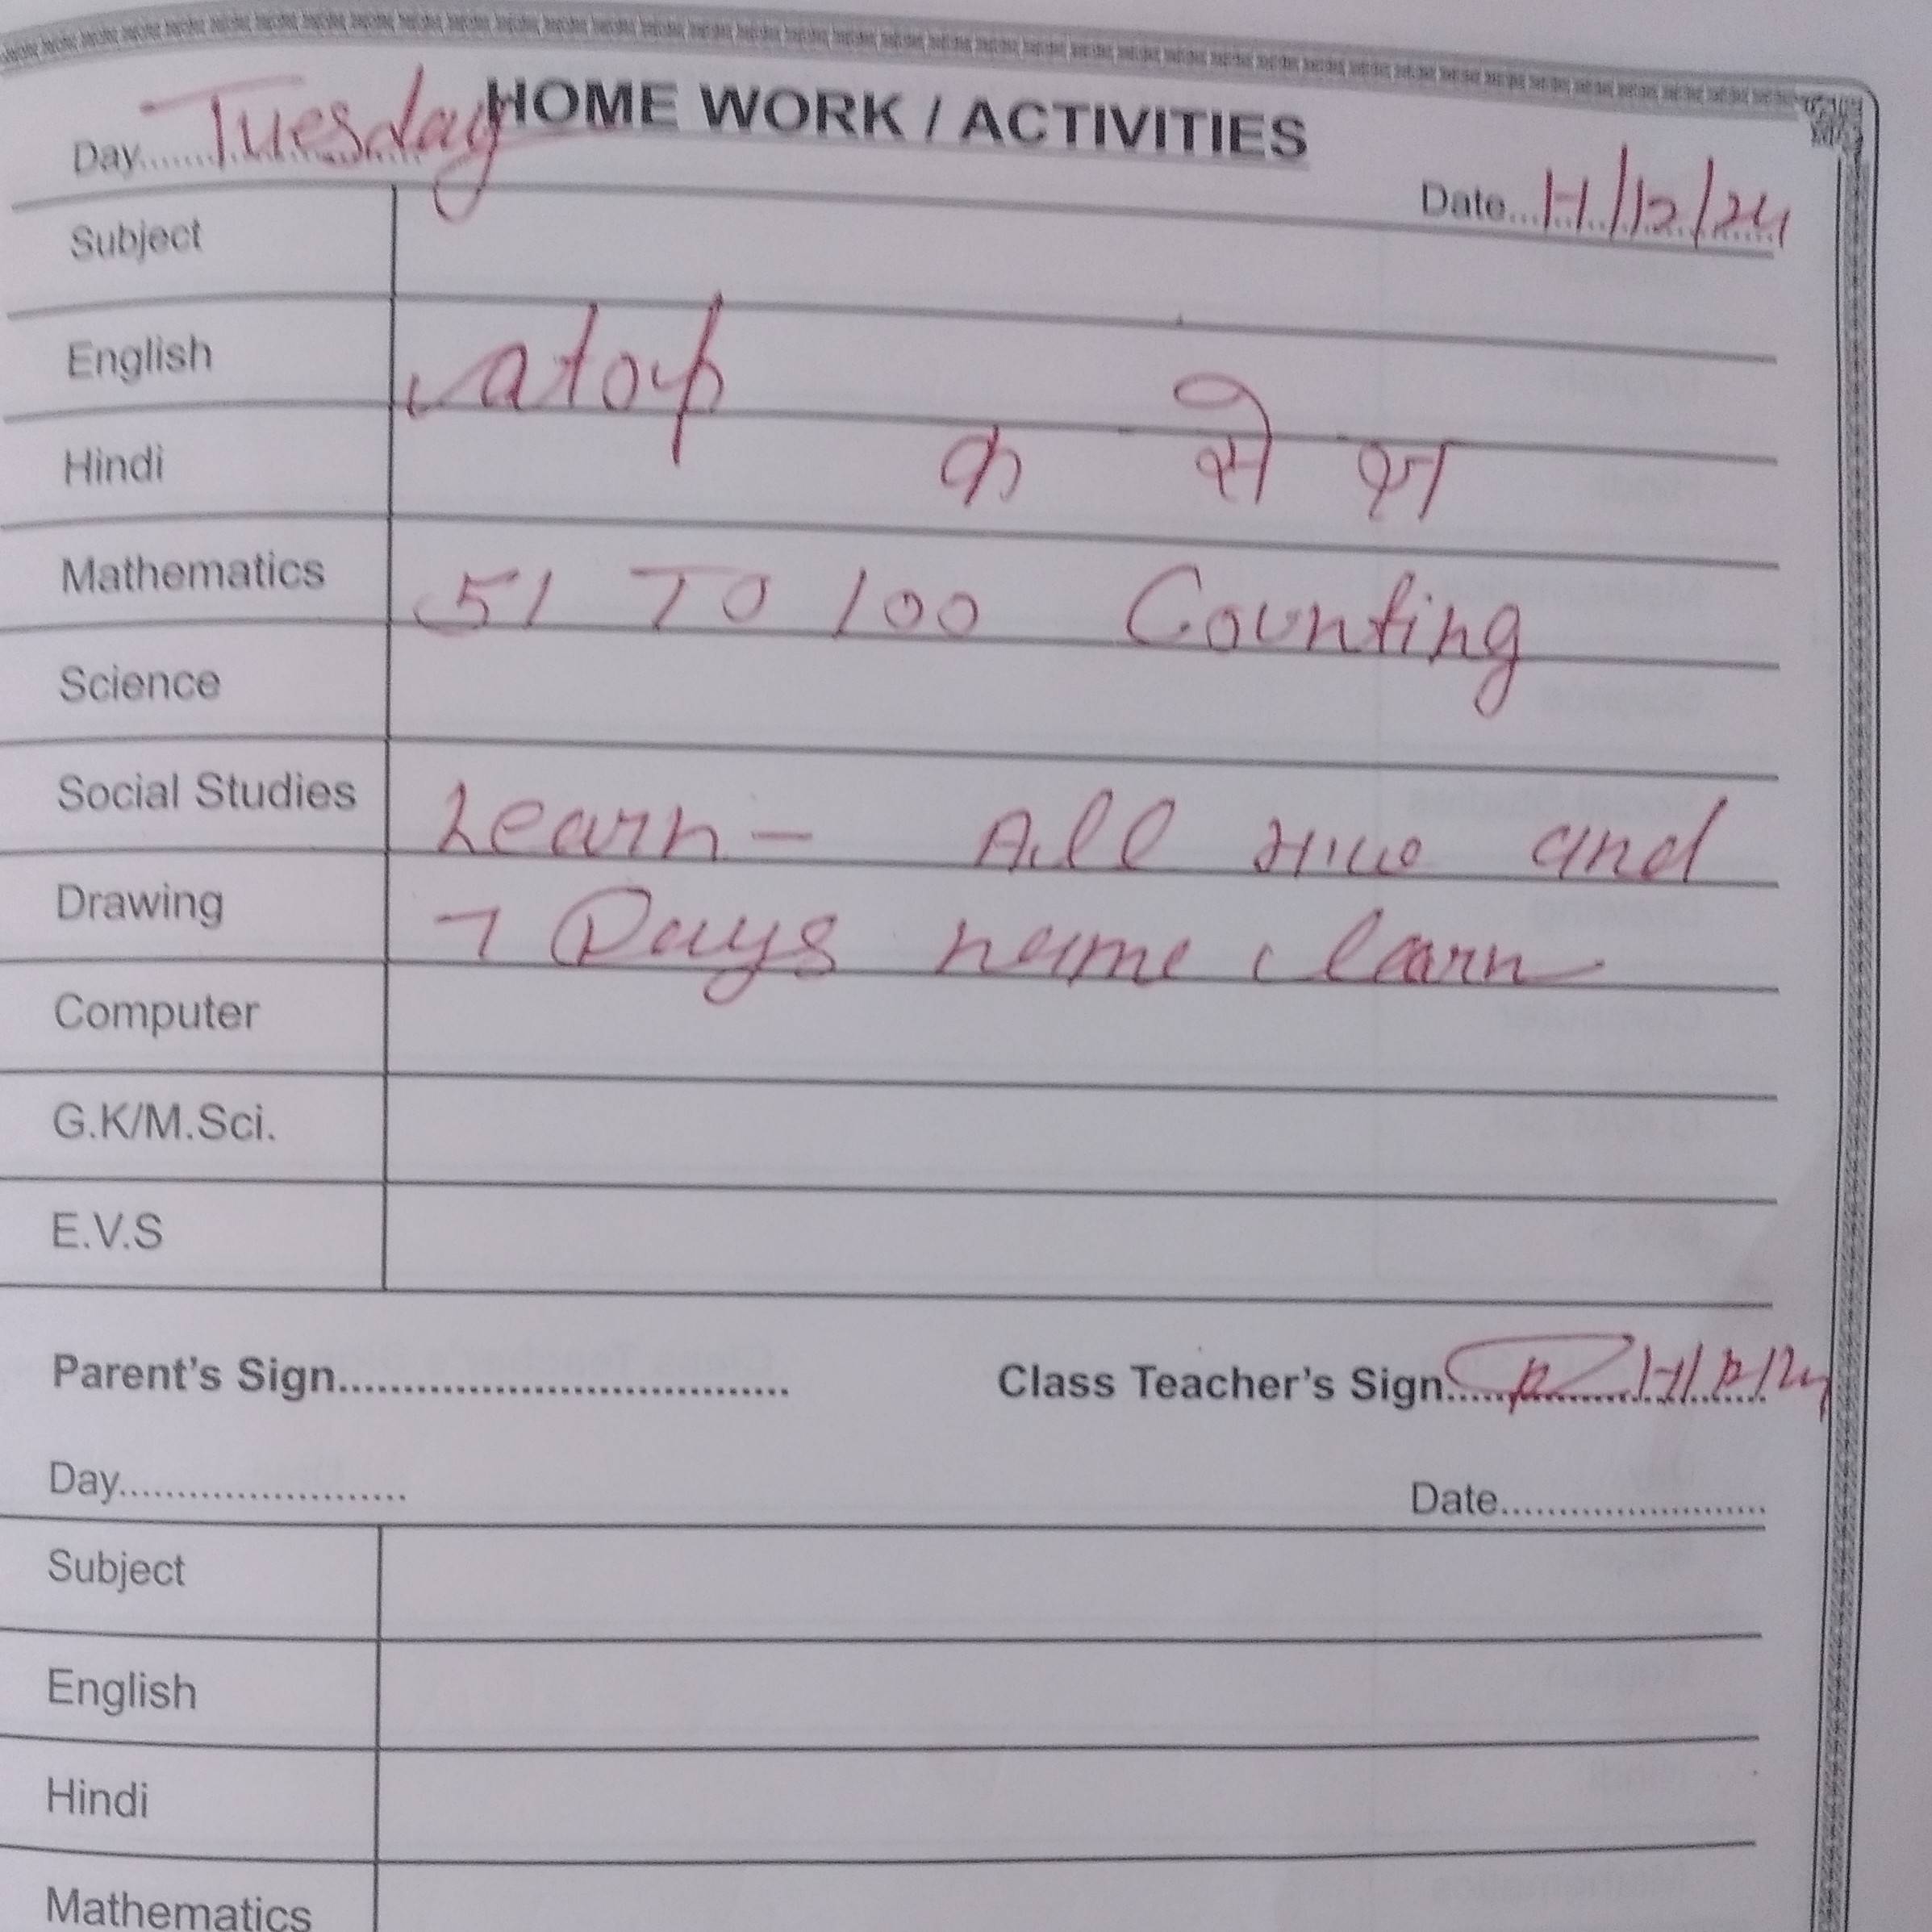 HOME WORK / ACTIVITIES
Day Tuesday
Date 17/12/24
Subject
English
Hindi क से ज्ञ
Mathematics 51 TO 100 Counting
Science
Social Studies Learn - All and
Drawing 7 Days name learn
Computer
G.K/M.Sci.
E.V.S
Parent's Sign
Class Teacher's Sign 17/12/24
Day
Date
Subject
English
Hindi
Mathematics